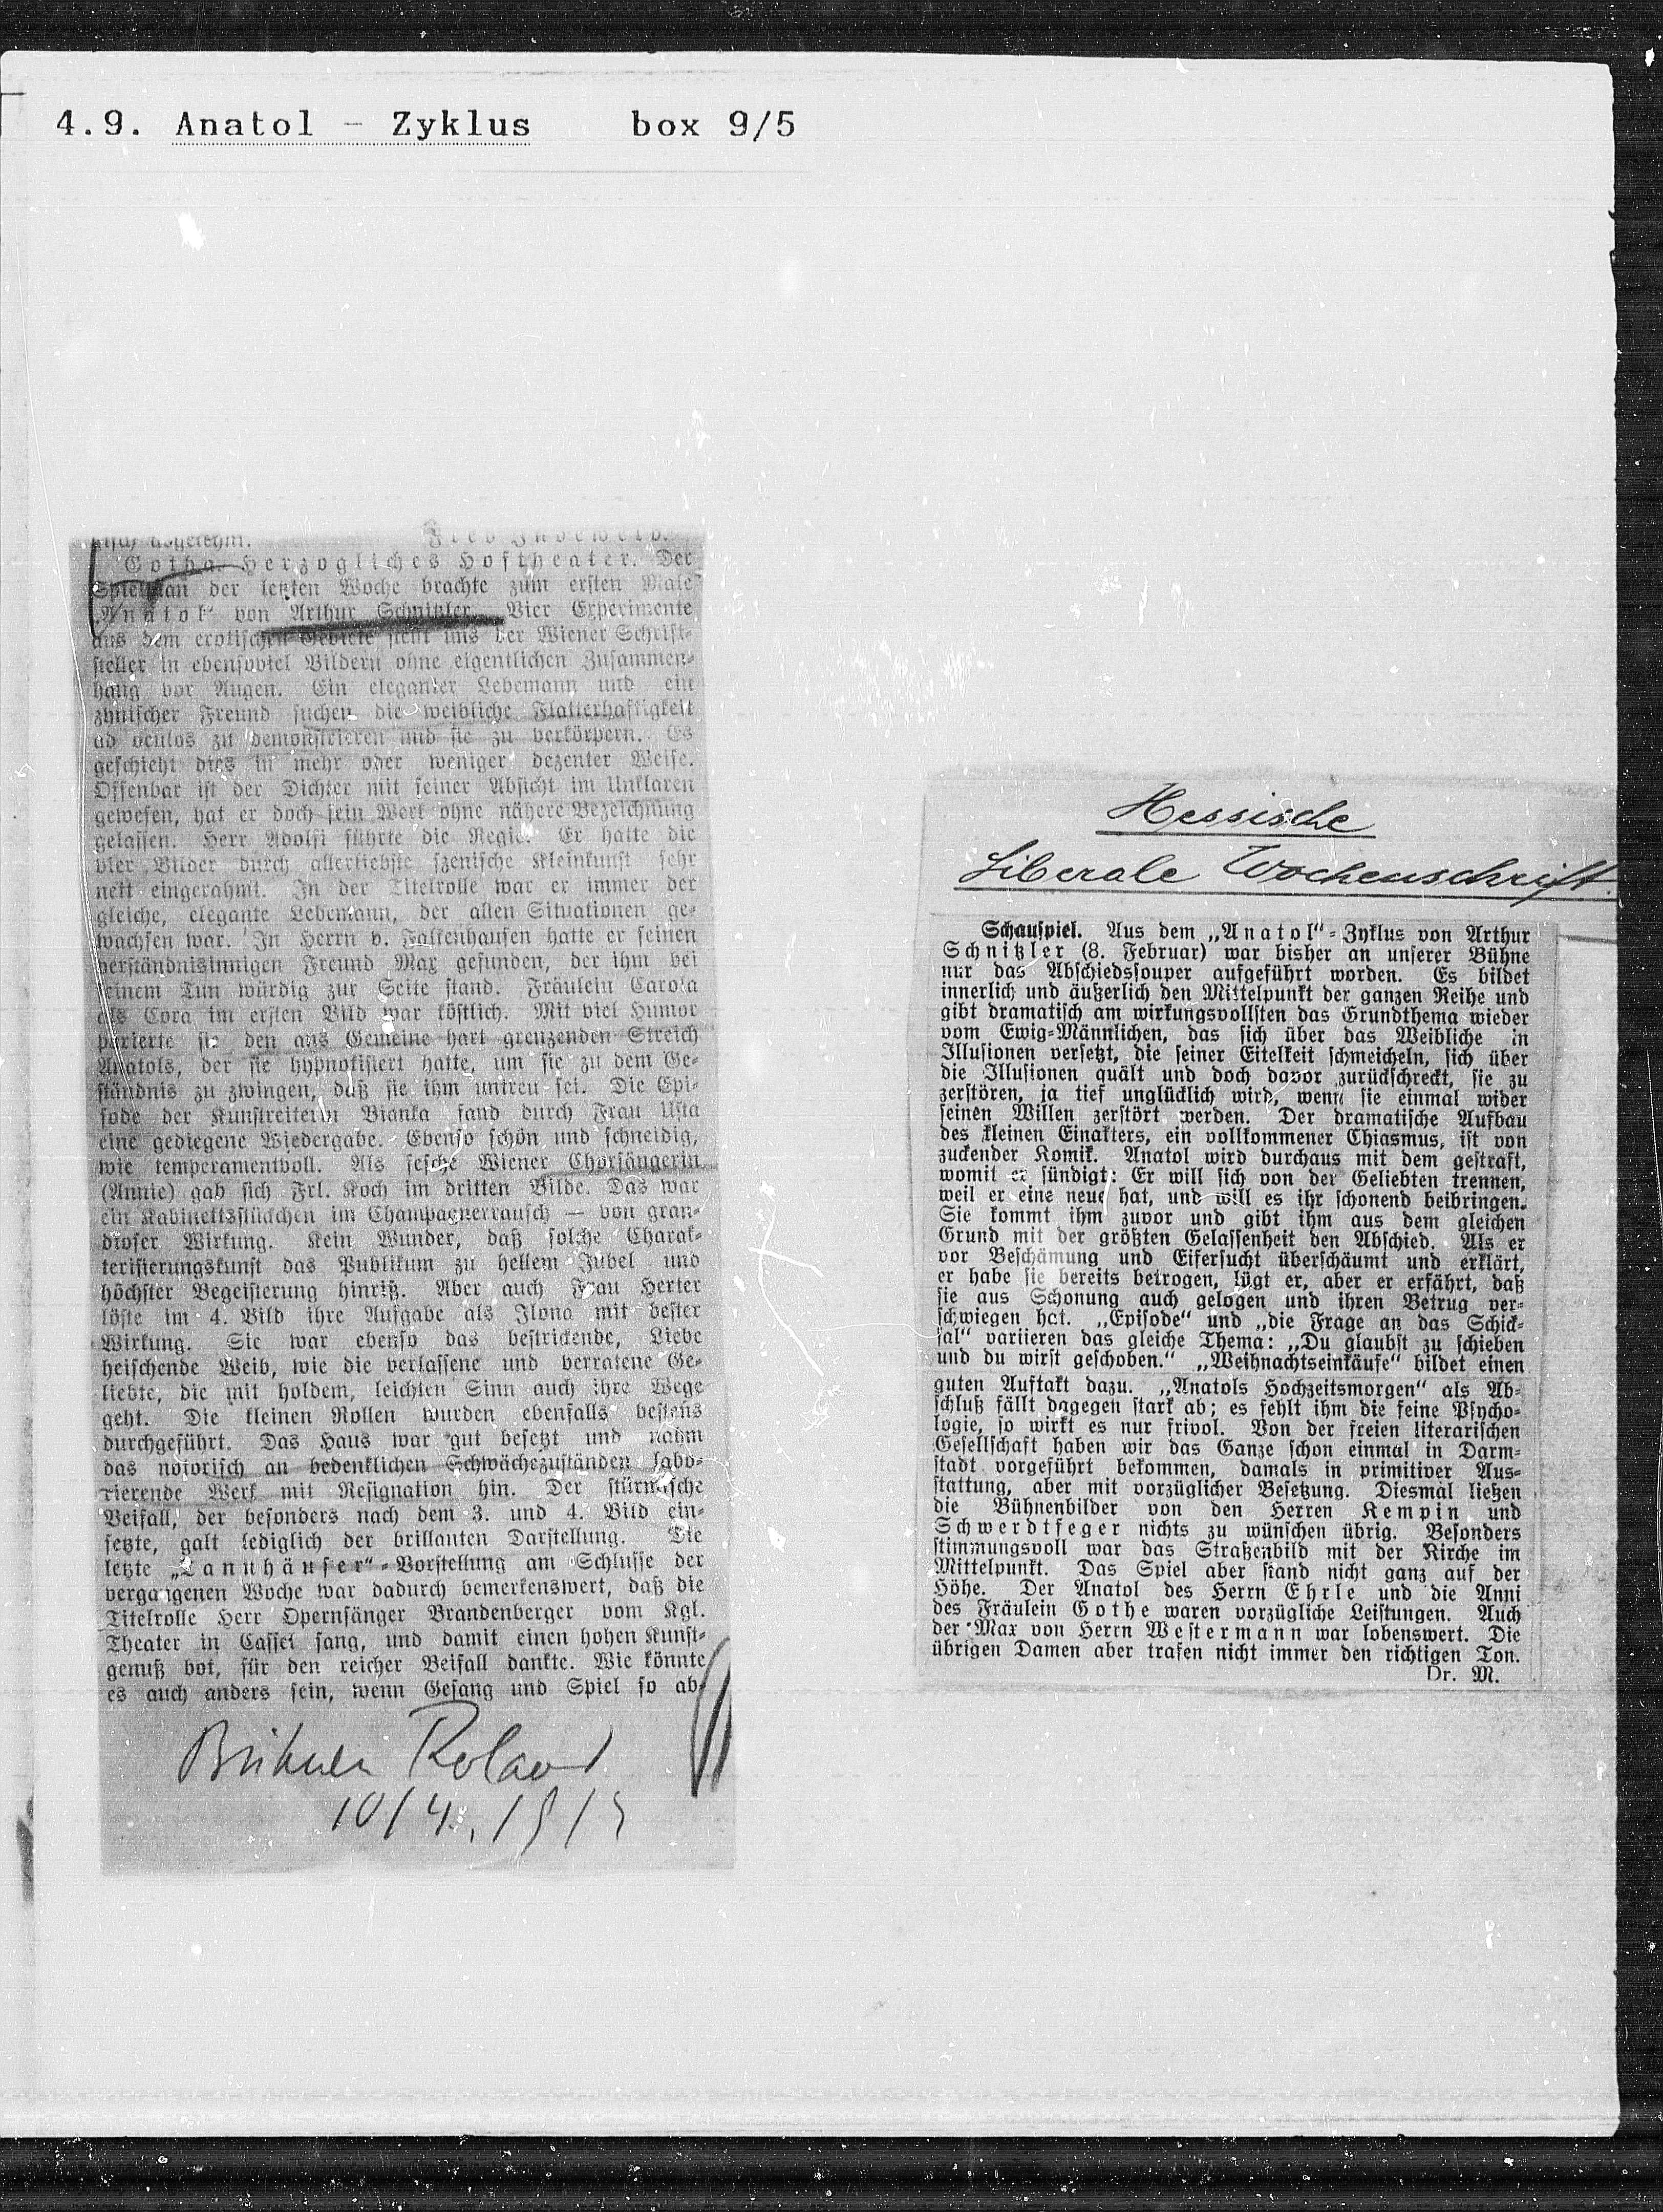 4.9. Anatol - Zyklus box 9/5
Gotha. Herzogliches Hoftheater. Der
Spielplan der letzten Woche brachte zum ersten Male
„Anatol“ von Arthur Schnitzler. Vier Experimente
aus dem erotischen Gebiete stellt uns der Wiener Schrift-
steller in ebensoviel Bildern ohne eigentlichen Zusammen-
hang vor Augen. Ein eleganter Lebemann und ein
zynischer Freund suchen die weibliche Flatterhaftigkeit
ad oculos zu demonstrieren und sie zu verkörpern. Es
geschieht dies in mehr oder weniger dezenter Weise.
Offenbar ist der Dichter mit seiner Absicht im Unklaren
gewesen, hat er doch sein Werk ohne nähere Bezeichnung
gelassen. Herr Adolfi führte die Regie. Er hatte die
vier Bilder durch allerliebste szenische Kleinkunst sehr
nett eingerahmt. In der Titelrolle war er immer der
gleiche, elegante Lebemann, der allen Situationen ge-
wachsen war. In Herrn v. Falkenhausen hatte er seinen
verständnisinnigen Freund Max gefunden, der ihm bei
seinem Tun würdig zur Seite stand. Fräulein Carola
als Cora im ersten Bild war köstlich. Mit viel Humor
parierte sie den ans Gemeine hart grenzenden Streich
Anatols, der sie hypnotisiert hatte, um sie zu dem Ge-
ständnis zu zwingen, daß sie ihm untreu sei. Die Epi-
sode der Kunstreiterin Bianka fand durch Frau Usta
eine gediegene Wiedergabe. Ebenso schön und schneidig,
wie temperamentvoll. Als fesche Wiener Chorsängerin
(Annie) gab sich Frl. Koch im dritten Bilde. Das war
ein Kabinettsstückchen im Champagnerrausch — von gran-
dioser Wirkung. Kein Wunder, daß solche Charak-
terisierungskunst das Publikum zu hellem Jubel und
höchster Begeisterung hinriß. Aber auch Frau Herter
löste im 4. Bild ihre Aufgabe als Ilona mit bester
Wirkung. Sie war ebenso das bestrickende, Liebe
heischende Weib, wie die verlassene und verratene Ge-
liebte, die mit holdem, leichten Sinn auch ihre Wege
geht. Die kleinen Rollen wurden ebenfalls bestens
durchgeführt. Das Haus war gut besetzt und nahm
das notorisch an bedenklichen Schwächezuständen labo-
rierende Werk mit Resignation hin. Der stürmische
Beifall, der besonders nach dem 3. und 4. Bild ein-
setzte, galt lediglich der brillanten Darstellung. Die
letzte „Tannhäuser“-Vorstellung am Schlusse der
vergangenen Woche war dadurch bemerkenswert, daß die
Titelrolle Herr Opernsänger Brandenberger vom Kgl.
Theater in Cassel sang, und damit einen hohen Kunst-
genuß bot, für den reicher Beifall dankte. Wie könnte
es auch anders sein, wenn Gesang und Spiel so ab-
Bühnen Roland
10/4. 191
Hessische
Liberale Wochenschrift.
Schauspiel. Aus dem „Anatol“-Zyklus von Arthur
Schnitzler (8. Februar) war bisher an unserer Bühne
nur das Abschiedssouper aufgeführt worden. Es bildet
innerlich und äußerlich den Mittelpunkt der ganzen Reihe und
gibt dramatisch am wirkungsvollsten das Grundthema wieder
vom Ewig-Männlichen, das sich über das Weibliche in
Illusionen versetzt, die seiner Eitelkeit schmeicheln, sich über
die Illusionen quält und doch davor zurückschreckt, sie zu
zerstören, ja tief unglücklich wird, wenn sie einmal wider
seinen Willen zerstört werden. Der dramatische Aufbau
des kleinen Einakters, ein vollkommener Chiasmus, ist von
zuckender Komik. Anatol wird durchaus mit dem gestraft,
womit er sündigt: Er will sich von der Geliebten trennen,
weil er eine neue hat, und will es ihr schonend beibringen.
Sie kommt ihm zuvor und gibt ihm aus dem gleichen
Grund mit der größten Gelassenheit den Abschied. Als er
vor Beschämung und Eifersucht überschäumt und erklärt,
er habe sie bereits betrogen, lügt er, aber er erfährt, daß
sie aus Schonung auch gelogen und ihren Betrug ver-
schwiegen hat. „Episode“ und „die Frage an das Schick-
sal“ variieren das gleiche Thema: „Du glaubst zu schieben
und du wirst geschoben.“ „Weihnachtseinkäufe“ bildet einen
guten Auftakt dazu. „Anatols Hochzeitsmorgen“ als Ab-
schluß fällt dagegen stark ab; es fehlt ihm die feine Psycho-
logie, so wirkt es nur frivol. Von der freien literarischen
Gesellschaft haben wir das Ganze schon einmal in Darm-
stadt vorgeführt bekommen, damals in primitiver Aus-
stattung, aber mit vorzüglicher Besetzung. Diesmal ließen
die Bühnenbilder von den Herren Kempin und
Schwerdtfeger nichts zu wünschen übrig. Besonders
stimmungsvoll war das Straßenbild mit der Kirche im
Mittelpunkt. Das Spiel aber stand nicht ganz auf der
Höhe. Der Anatol des Herrn Ehrle und die Anni
des Fräulein Gothe waren vorzügliche Leistungen. Auch
der Max von Herrn Westermann war lobenswert. Die
übrigen Damen aber trafen nicht immer den richtigen Ton.
Dr. M.